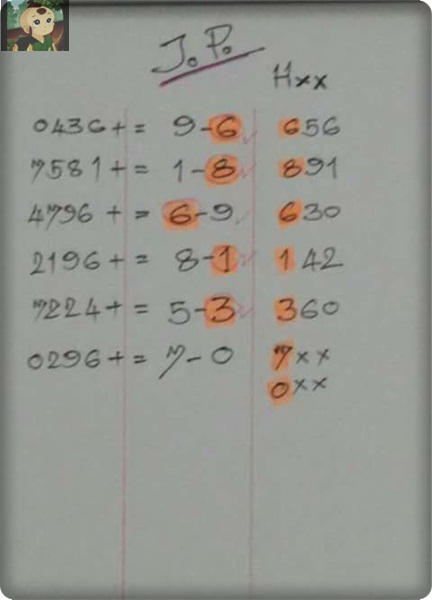 J.P.
Hxx
0436+ = 9-6 656
7581+ = 1-8 891
4796+ = 6-9 630
2196+ = 8-1 142
7224+ = 5-3 360
0296+ = 7-0 7xx
0xx